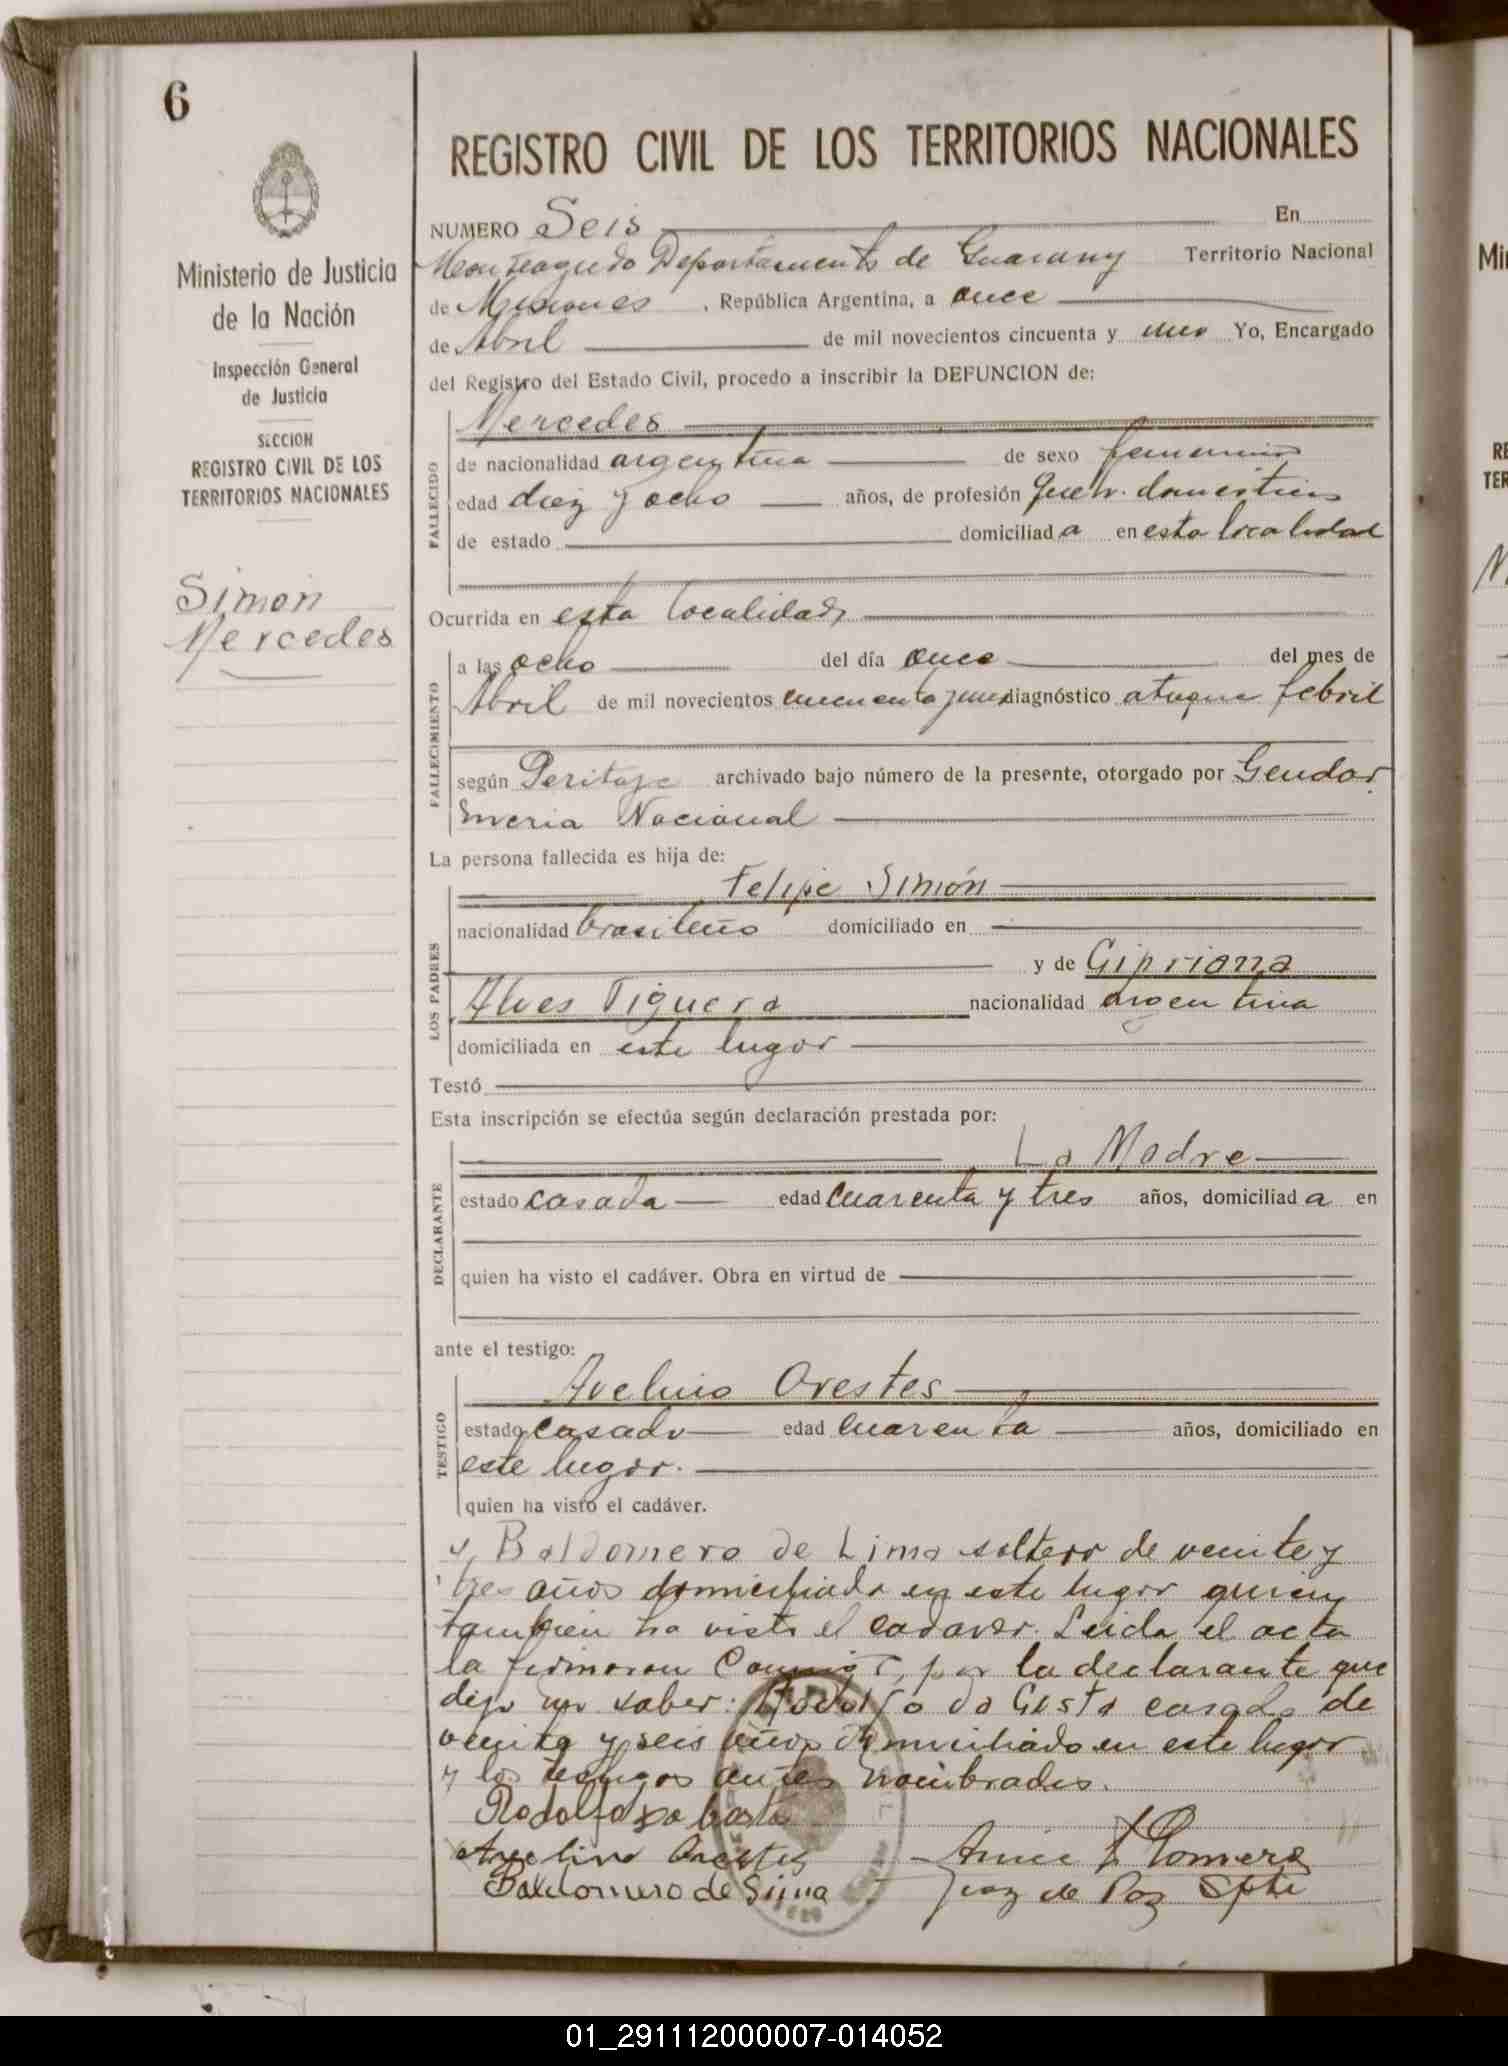 6
REGISTRO CIVIL DE LOS TERRITORIOS NACIONALES
Ministerio de Justicia
de la Nación
Inspección General
de Justicia
SECCION
REGISTRO CIVIL DE LOS
TERRITORIOS NACIONALES
Simón
Mercedes
NUMERO Seis En
Monteagudo Departamento de Guarany Territorio Nacional
de Misiones, República Argentina, a once
de Abril de mil novecientos cincuenta y uno Yo, Encargado
del Registro del Estado Civil, procedo a inscribir la DEFUNCION de:
FALLECIDO
Mercedes
de nacionalidad argentina de sexo femenino
edad diez y ocho años, de profesión domésticos
de estado domiciliad a en esta localidad
Ocurrida en esta localidad
FALLECIMIENTO
a las ocho del día once del mes de
Abril de mil novecientos cincuenta y uno diagnóstico ataque febril
según Peritaje archivado bajo número de la presente, otorgado por Gendar
meria Nacional
La persona fallecida es hija de:
LOS PADRES
Felipe Simón
nacionalidad brasileño domiciliado en
y de Cipriana
Alves Figuera nacionalidad argentina
domiciliada en este lugar
Testó
Esta inscripción se efectúa según declaración prestada por:
DECLARANTE
La Madre
estado casada edad cuarenta y tres años, domiciliad a en
quien ha visto el cadáver. Obra en virtud de
ante el testigo:
TESTIGO
Avelino Orestes
estado casado edad cuarenta años, domiciliado en
este lugar.
quien ha visto el cadáver.
y Baldomero de Lima soltero de veinte y
tres años domiciliado en este lugar quien
tambien ha visto el cadaver. Leida el acta
la firmaron conmigo, por la declarante que
dijo no saber: Rodolfo da Costa casado de
veinte y seis años domiciliado en este lugar
y los testigos antes nombrados.
Rodolfo da Costa
Avelino Orestes
Baldomero de Lima
Romero
Juez de Paz Splte
01_291112000007-014052